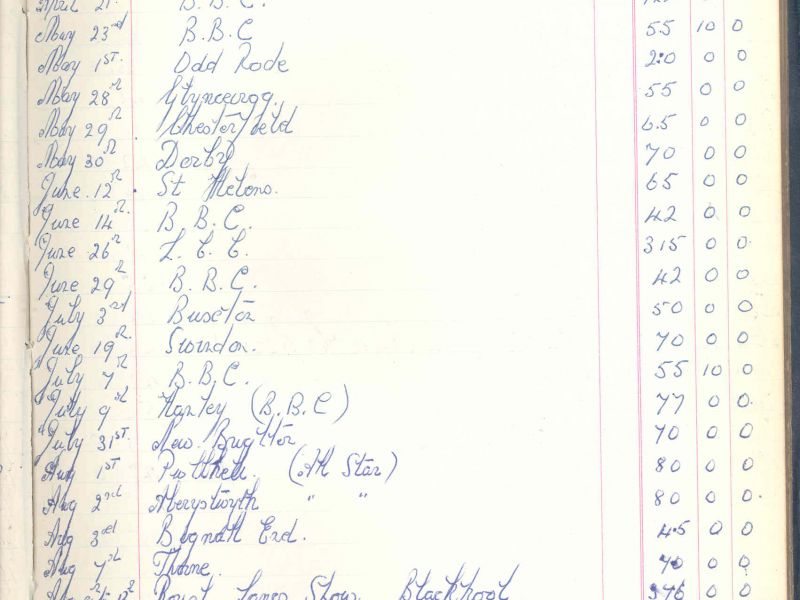 April 21. B.B.C.
May 23rd B.B.C 55 10 0
May 1ST Odd Rode 20 0 0
May 28th Glyncewgg. 55 0 0
May 29th Chesterfield 65 0 0
May 30th Derby 70 0 0
June 12th St Helens. 65 0 0
June 14th B.B.C. 42 0 0
June 26th L.C.C. 315 0 0
June 29th B.B.C. 42 0 0
July 3rd Buxton 50 0 0
June 19th Swindon. 70 0 0
July 7th B.B.C. 55 10 0
July 9th Hanley (B.B.C) 77 0 0
July 31ST New Brighton 70 0 0
Aug 1ST Pwllheli. (All Star) 80 0 0
Aug 2nd Aberystwyth " " 80 0 0
Aug 3rd End. 45 0 0
Aug 7th Thorne. 70 0 0
Aug Royal Lancs Show Blackpool 376 0 0